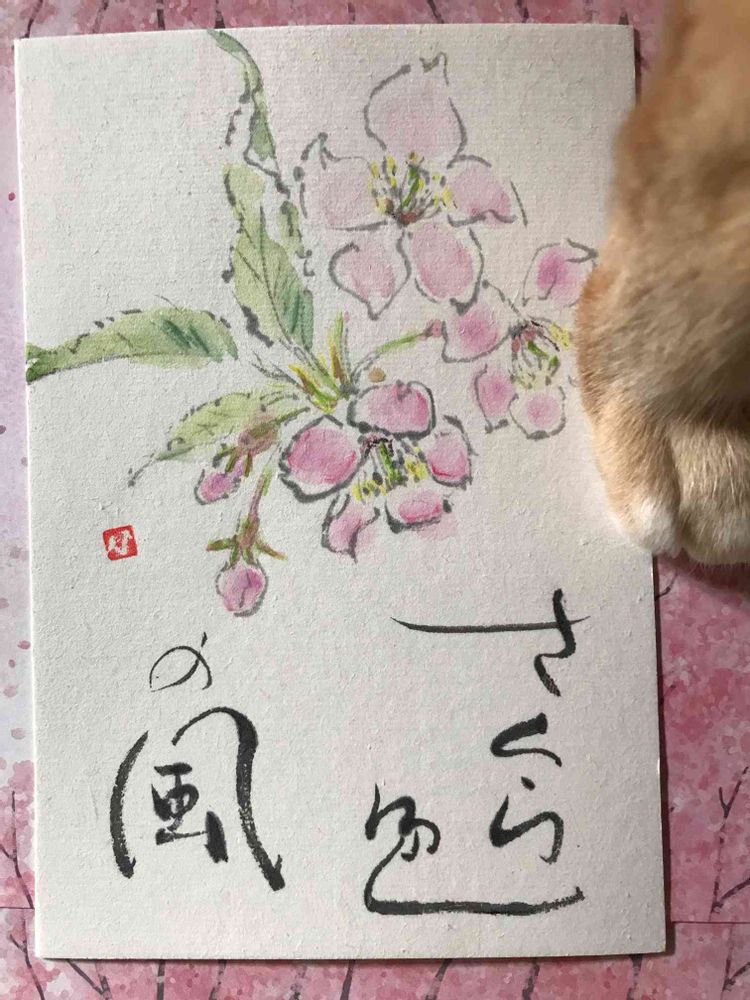 さくら色
の風